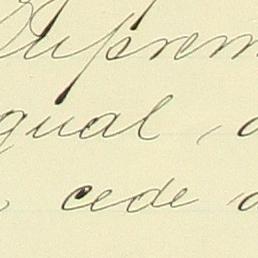 Suprem
qual,
cede